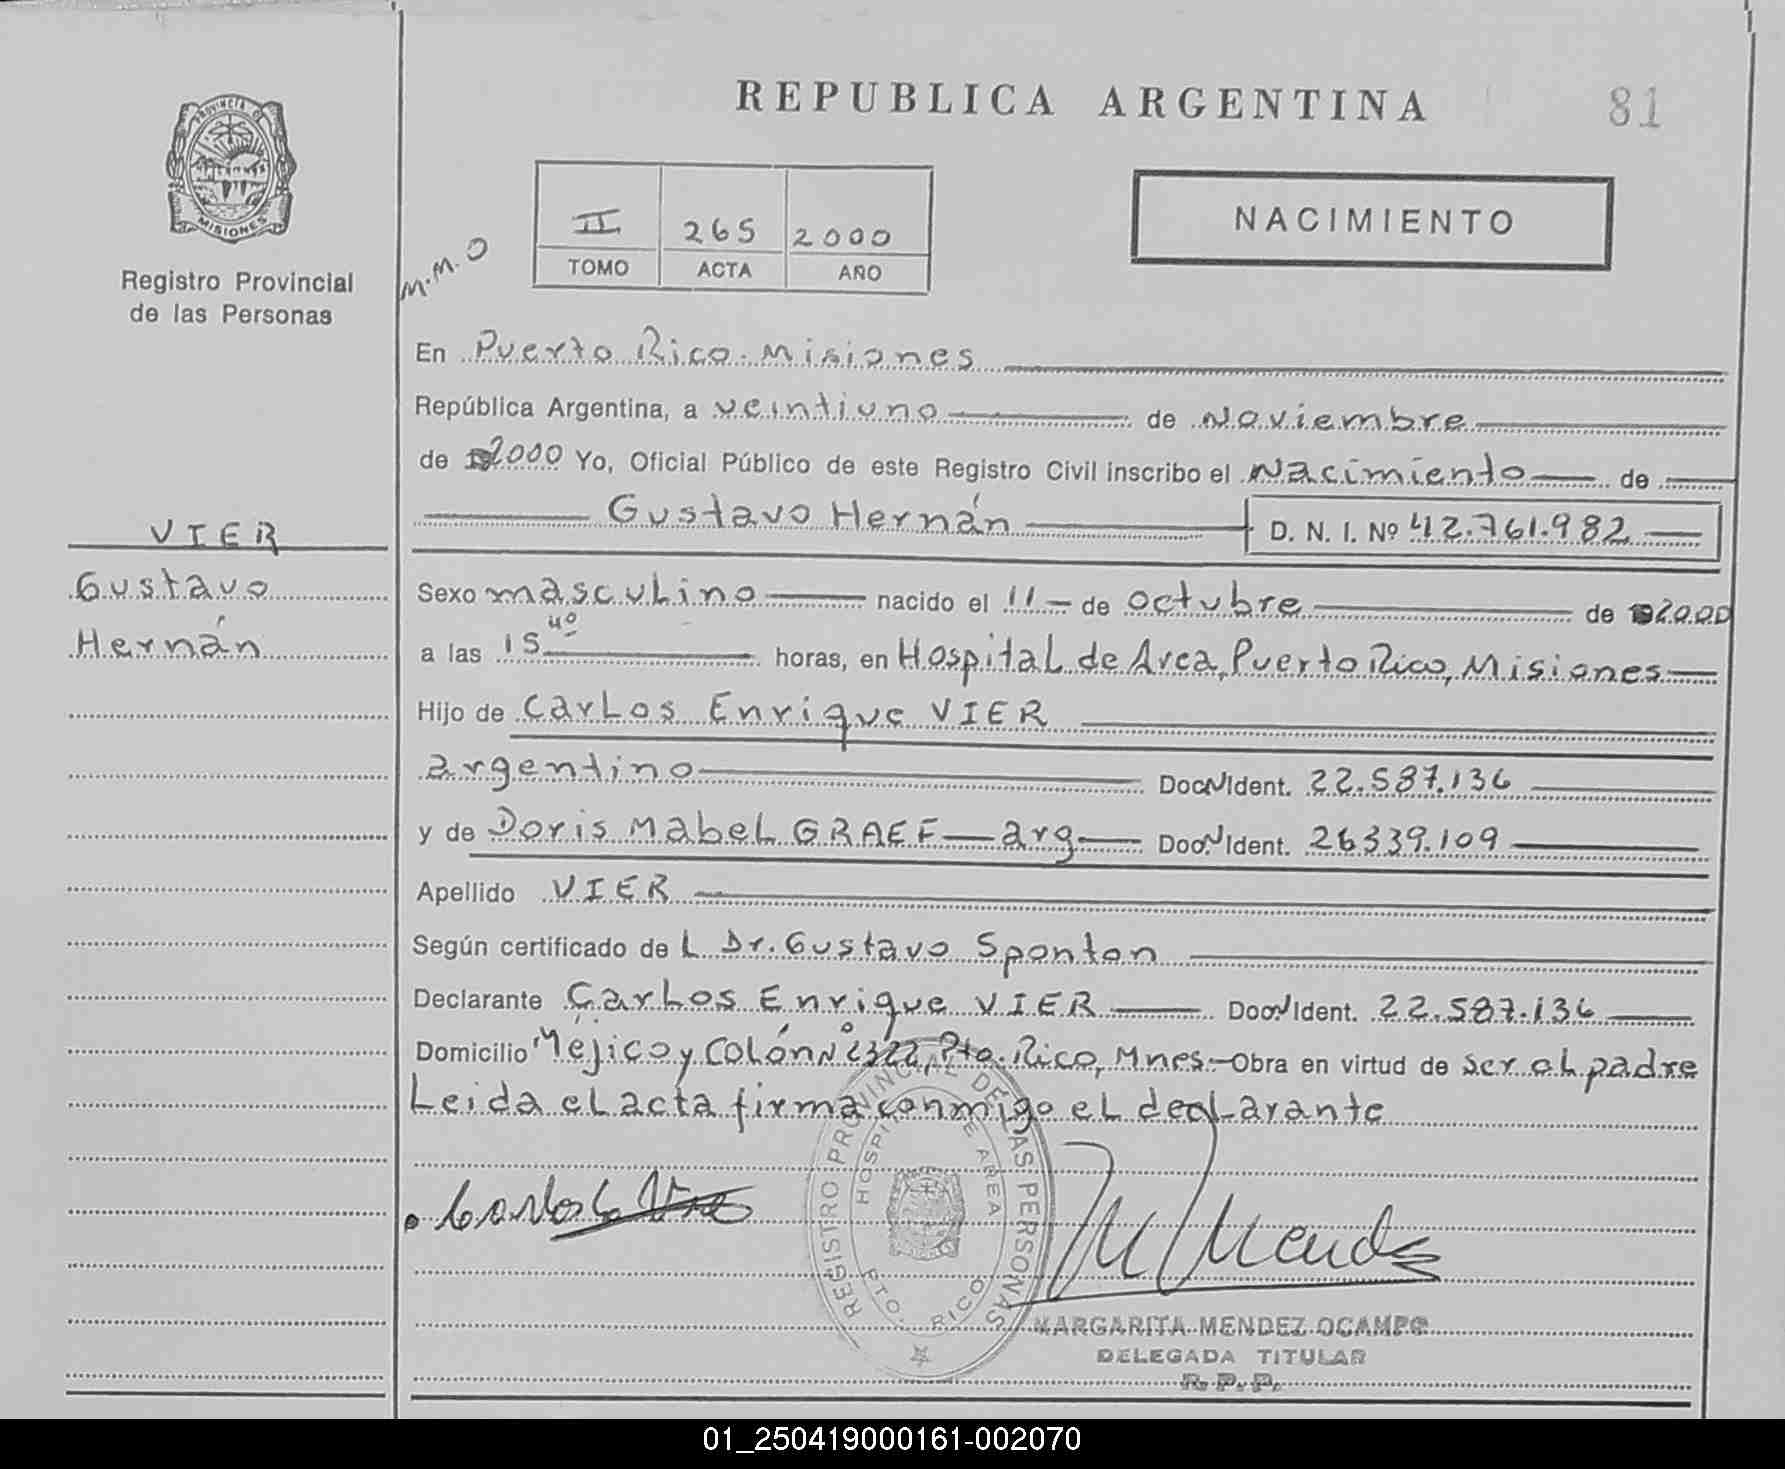 REPUBLICA ARGENTINA
81
PROVINCIA DE
MISIONES
Registro Provincial
de las Personas
M.M.O
II 265 2000
TOMO ACTA AÑO
NACIMIENTO
En Puerto Rico. Misiones
República Argentina, a veintiuno de Noviembre
de 2000 Yo, Oficial Público de este Registro Civil inscribo el Nacimiento de
Gustavo Hernán D. N. I. Nº 42.761.982
VIER
Gustavo
Hernán
Sexo masculino nacido el 11 de octubre de 2000
a las 15 40 horas, en Hospital de Area, Puerto Rico, Misiones
Hijo de Carlos Enrique VIER
argentino Doc. N Ident. 22.587.136
y de Doris Mabel GRAEF arg Doc. N Ident. 26339.109
Apellido VIER
Según certificado de L Dr. Gustavo Sponton
Declarante Carlos Enrique VIER Doc. N Ident. 22.587.136
Domicilio Méjico y Colón Nº 2322, Pto. Rico, Mnes. Obra en virtud de ser el padre
Leida el acta firma conmigo el declarante
REGISTRO PROVINCIAL DE LAS PERSONAS
HOSPITAL DE AREA
PTO. RICO
MARGARITA MENDEZ OCAMPO
DELEGADA TITULAR
R. P. P.
01_250419000161-002070